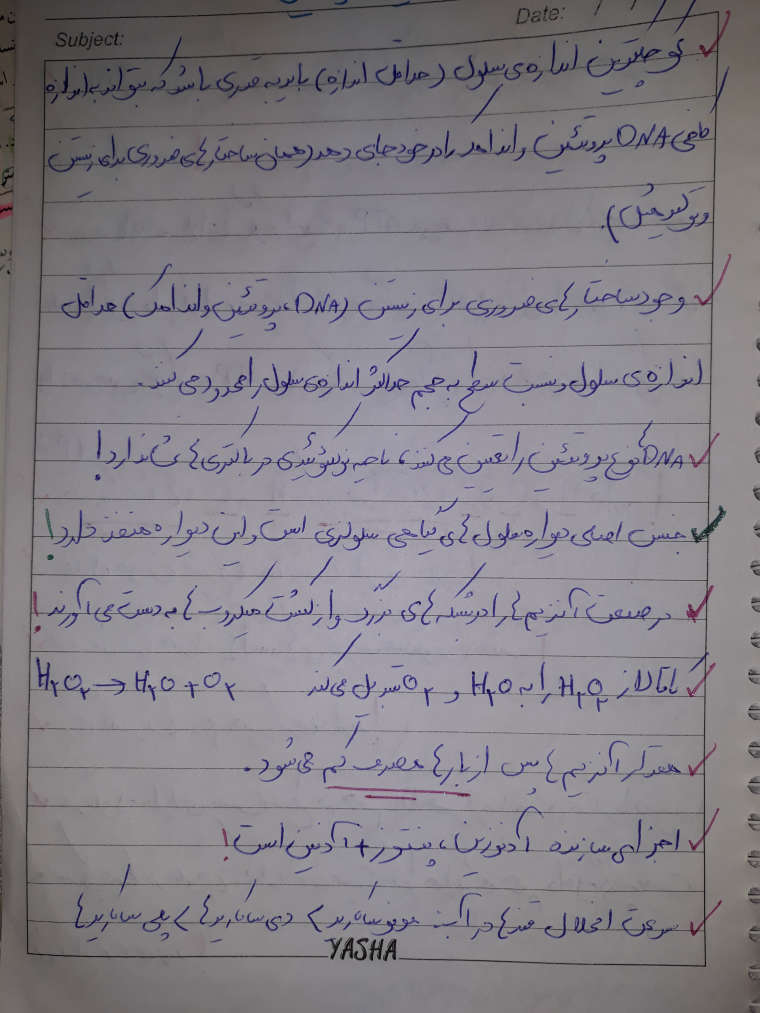 Date: / /
Subject:
کوچکترین اندازه‌ی سلول (حداقل اندازه) باید به قدری باشد که بتواند به اندازه
کافی DNA پروتئین و اندامک را در خود جای دهد (همان ساختارهای ضروری برای زیستن
و تولید مثل).
وجود ساختارهای ضروری برای زیستن (DNA، پروتئین و اندامک) حداقل
اندازه‌ی سلول و نسبت سطح به حجم حداکثر اندازه‌ی سلول را محدود می‌کند.
DNA نوع پروتئین را تعیین می‌کند، ناحیه نوکلئوئیدی در باکتری‌ها غشا ندارد!
جنس اصلی دیواره سلول‌های گیاهی سلولزی است و این دیواره منفذ دارد!
در صنعت آنزیم‌ها را در بشکه‌های بزرگ و از کشت میکروب‌ها به دست می‌آورند!
کاتالاز H₂O₂ را به H₂O و O₂ تبدیل می‌کند H₂O₂ → H₂O + O₂
مقدار آنزیم‌ها پس از بارها مصرف کم می‌شود.
اجزای سازنده آدنوزین، پنتوز + آدنین است!
سرعت انحلال قندها در آب: مونوساکارید > دی ساکاریدها > پلی ساکاریدها
YASHA